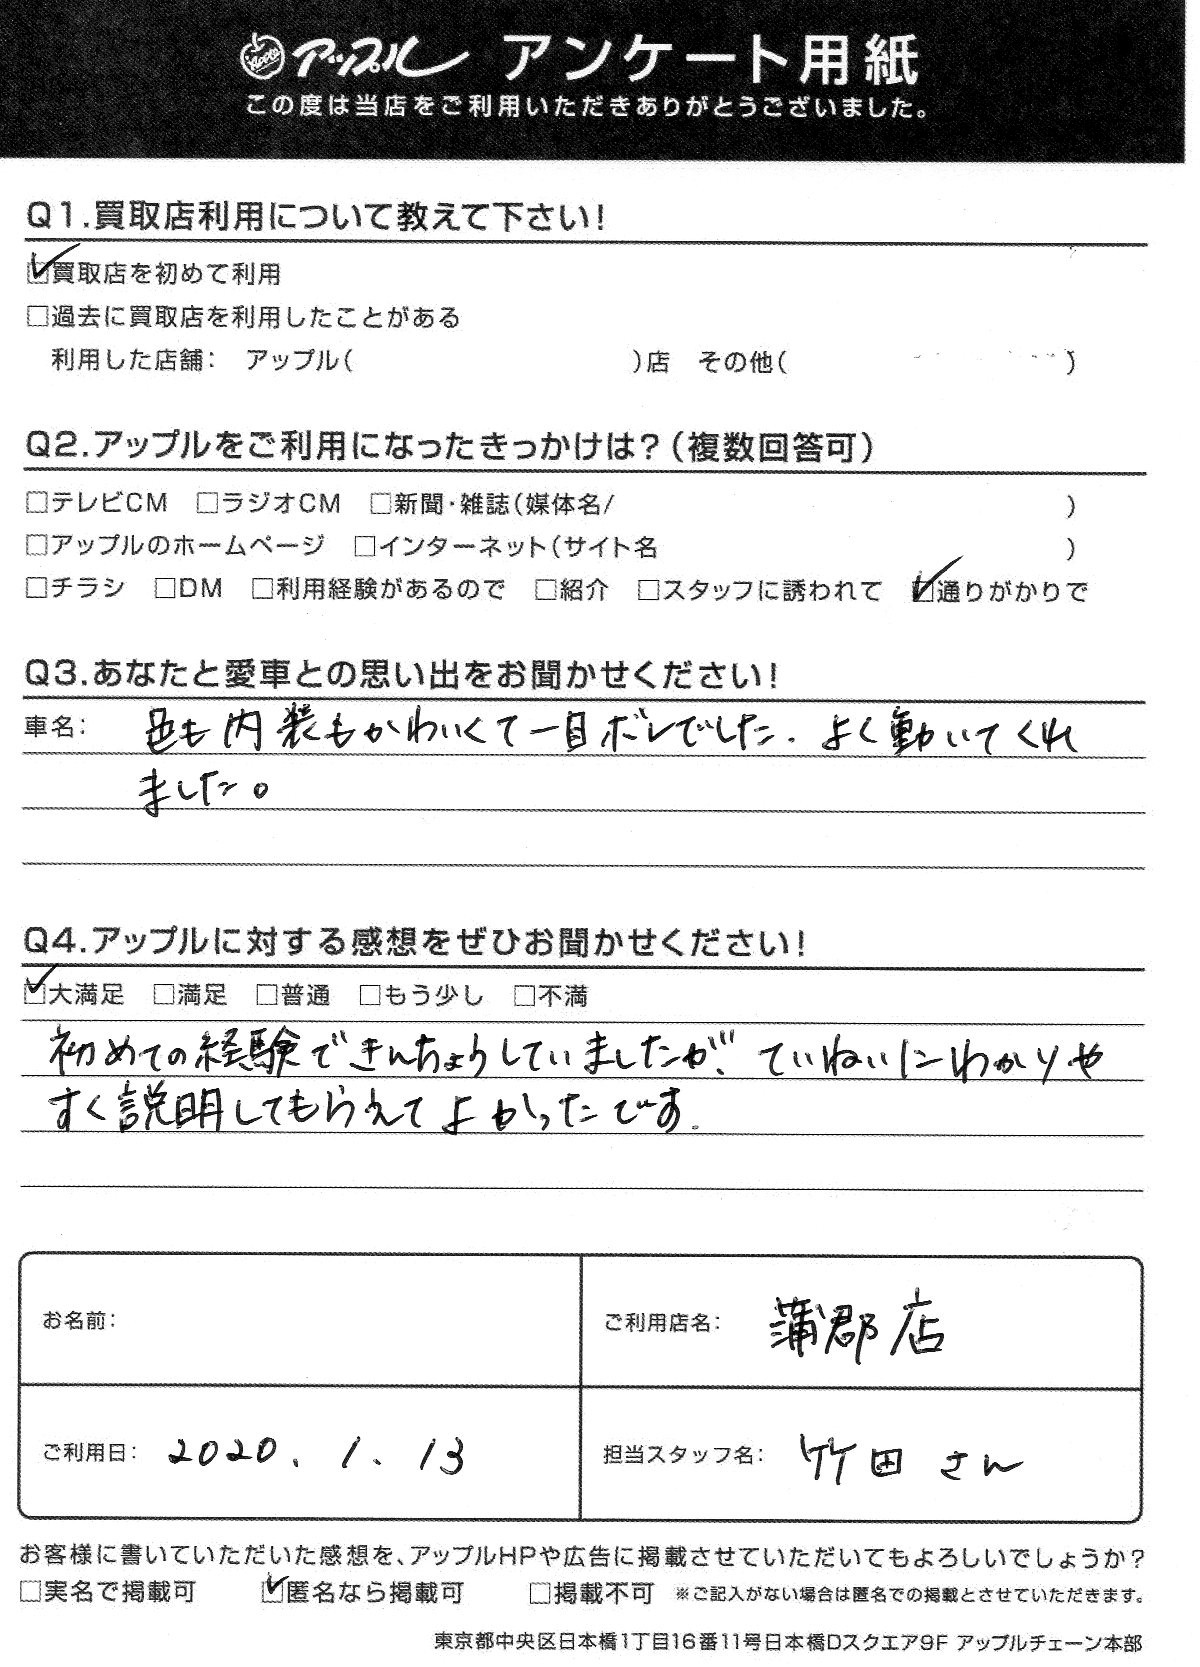 アップル アンケート用紙
この度は当店をご利用いただきありがとうございました。
Q1.買取店利用について教えて下さい!
☑買取店を初めて利用
□過去に買取店を利用したことがある
利用した店舗: アップル( )店 その他( )
Q2.アップルをご利用になったきっかけは?(複数回答可)
□テレビCM □ラジオCM □新聞・雑誌(媒体名/ )
□アップルのホームページ □インターネット(サイト名 )
□チラシ □DM □利用経験があるので □紹介 □スタッフに誘われて ☑通りがかりで
Q3.あなたと愛車との思い出をお聞かせください!
車名: 色も内装もかわいくて一目ボレでした. よく動いてくれ
ました。
Q4.アップルに対する感想をぜひお聞かせください!
☑大満足 □満足 □普通 □もう少し □不満
初めての経験できんちょうしていましたが、ていねいにわかりや
すく説明してもらえてよかったです.
お名前:
ご利用店名: 蒲郡店
ご利用日: 2020. 1. 13
担当スタッフ名: 竹田 さん
お客様に書いていただいた感想を、アップルHPや広告に掲載させていただいてもよろしいでしょうか?
□実名で掲載可 ☑匿名なら掲載可 □掲載不可 ※ご記入がない場合は匿名での掲載とさせていただきます。
東京都中央区日本橋1丁目16番11号日本橋Dスクエア9F アップルチェーン本部